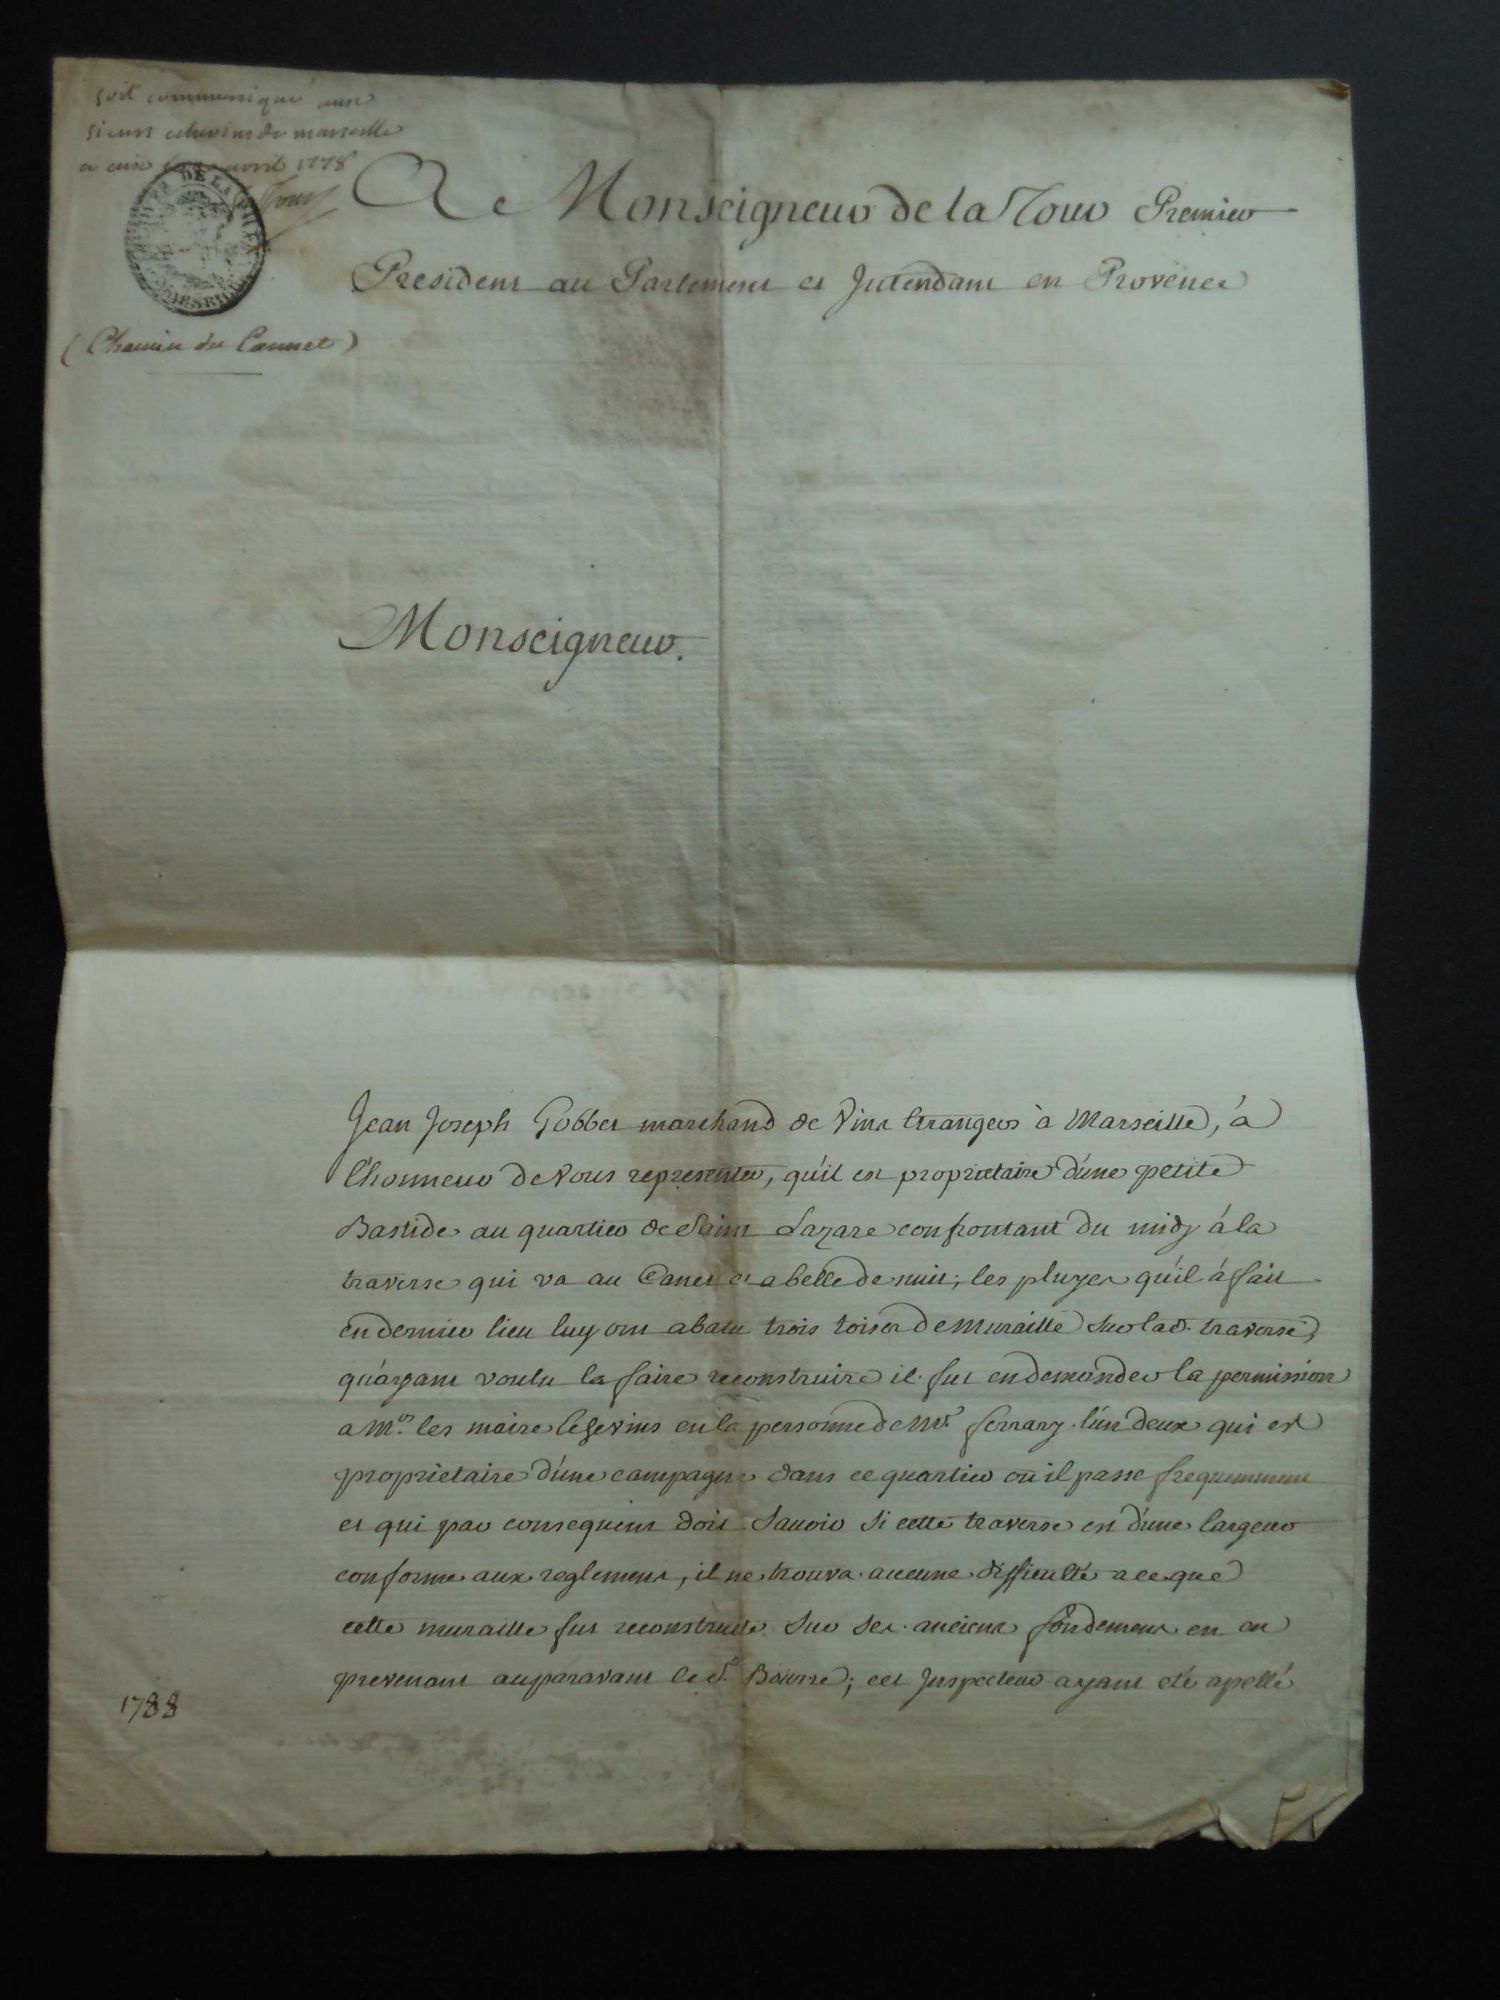 soit communiqué aux
sieurs echevins de marseille
a aix le avril 1778
DE LA
MARSEILLE
(Chemin du Cannet)
A Monseigneur de la Tour Premier
President au Parlement et Intendant en Provence
Monseigneur.
Jean Joseph Gobbet marchand de Vins Etrangers à Marseille, á
l'honneur de Vous representer, qu'il est proprietaire d'une petite
Bastide au quartier de Saint Lazare confrontant du midy á la
traverse qui va au Canet et a belle de nuit; les pluyes qu'il á fait
en dernier lieu luy ont abatu trois toises de Muraille sur lad. traverse,
qu'ayant voulu la faire reconstruire il fut en demander la permission
a Mrs. les maire Echevins en la personne de Mr. ferrary l'un deux qui est
proprietaire d'une campagne dans ce quartier ou il passe frequemment
et qui par consequent doit Sauoir si cette traverse est d'une largeur
conforme aux reglemens, il ne trouva aucune difficulté a ce que
cette muraille fut reconstruite sur ses anciens fondemens en en
prevenant auparavant le Sr. ; cet Inspecteur ayant eté apellé
1788